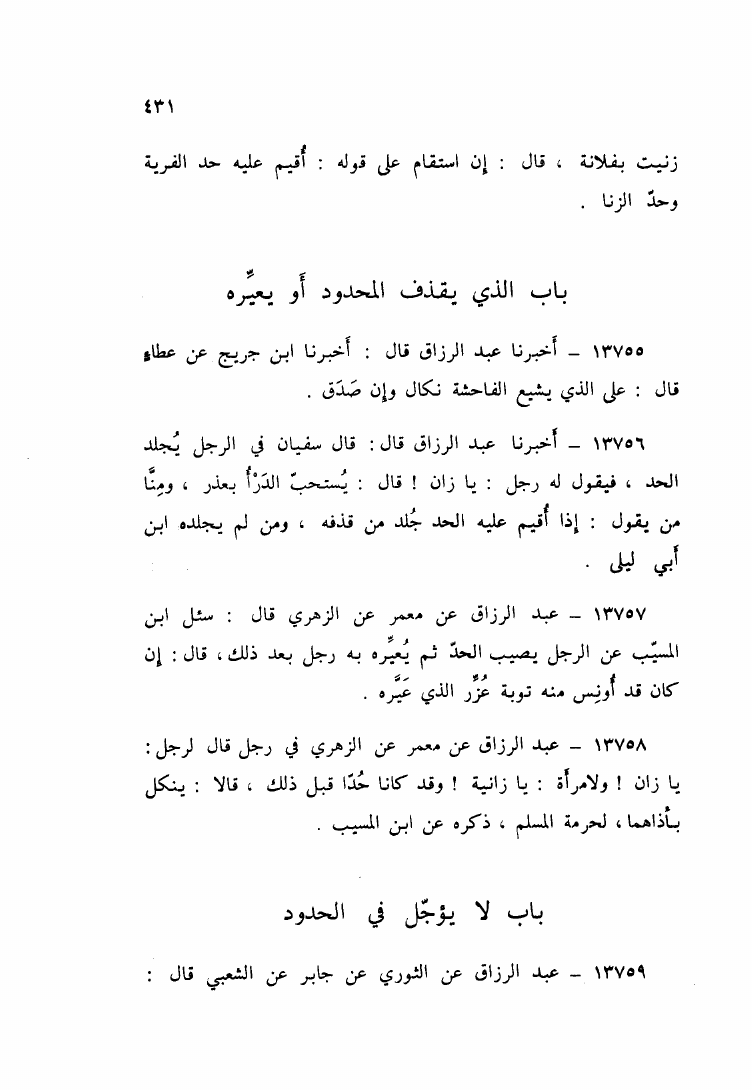 ٤٣١
زنيت بفلانة ، قال : إن استقام على قوله : أُقيم عليه حد الفرية
وحدّ الزنا .
باب الذي يقذف المحدود أَو يعيِّره
١٣٧٥٥ – أَخبرنا عبد الرزاق قال : أَخبرنا ابن جريج عن عطاءٍ
قال : على الذي يشيع الفاحشة نكال وإن صَدَق .
١٣٧٥٦ – أَخبرنا عبد الرزاق قال : قال سفيان في الرجل يُجلد
الحد ، فيقول له رجل : يا زان ! قال : يُستحبّ الدَرْأُ بعذر ، ومِنَّا
من يقول : إذا أُقيم عليه الحد جُلد من قذفه ، ومن لم يجلده ابن
أَبي ليلى .
١٣٧٥٧ – عبد الرزاق عن معمر عن الزهري قال : سئل ابن
المسيّب عن الرجل يصيب الحدّ ثم يُعيِّره به رجل بعد ذلك ، قال : إن
كان قد أُونِس منه توبة عُزِّر الذي عَيَّره .
١٣٧٥٨ – عبد الرزاق عن معمر عن الزهري في رجل قال لرجل :
يا زان ! ولامرأَة : يا زانية ! وقد كانا حُدّا قبل ذلك ، قالا : ينكل
بأَذاهما ، لحرمة المسلم ، ذكره عن ابن المسيب .
باب لا يؤجّل في الحدود
١٣٧٥٩ – عبد الرزاق عن الثوري عن جابر عن الشعبي قال :